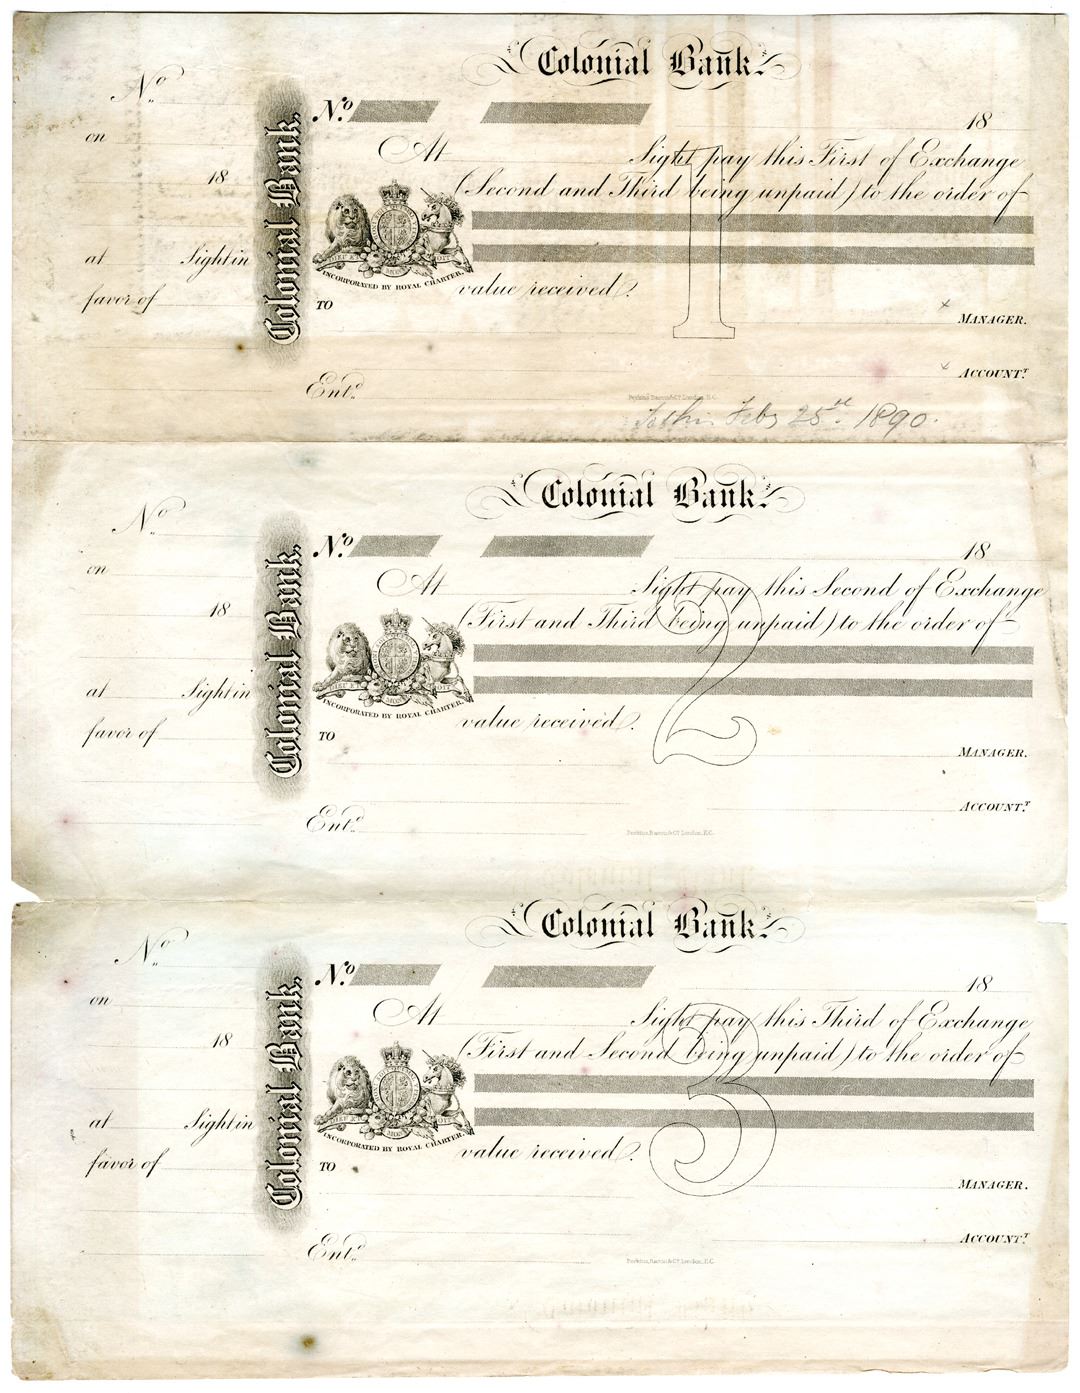 Colonial Bank.
No
No. 18
on
At Sight pay this First of Exchange
18
(Second and Third being unpaid) to the order of
Colonial Bank.
1
DIEU ET MON DROIT
INCORPORATED BY ROYAL CHARTER.
at Sight in
favor of
value received.
TO
x MANAGER.
x ACCOUNT.T
Ent.d
Perkins, Bacon & Co. London, E.C.
Feby 25th. 1890.
Colonial Bank.
No
No. 18
on
At Sight pay this Second of Exchange
18
(First and Third being unpaid) to the order of
Colonial Bank.
2
DIEU ET MON DROIT
INCORPORATED BY ROYAL CHARTER.
at Sight in
favor of
value received.
TO
MANAGER.
ACCOUNT.T
Ent.d
Perkins, Bacon & Co. London, E.C.
Colonial Bank.
No
No. 18
on
At Sight pay this Third of Exchange
18
(First and Second being unpaid) to the order of
Colonial Bank.
3
DIEU ET MON DROIT
INCORPORATED BY ROYAL CHARTER.
at Sight in
favor of
value received.
TO
MANAGER.
ACCOUNT.T
Ent.d
Perkins, Bacon & Co. London, E.C.